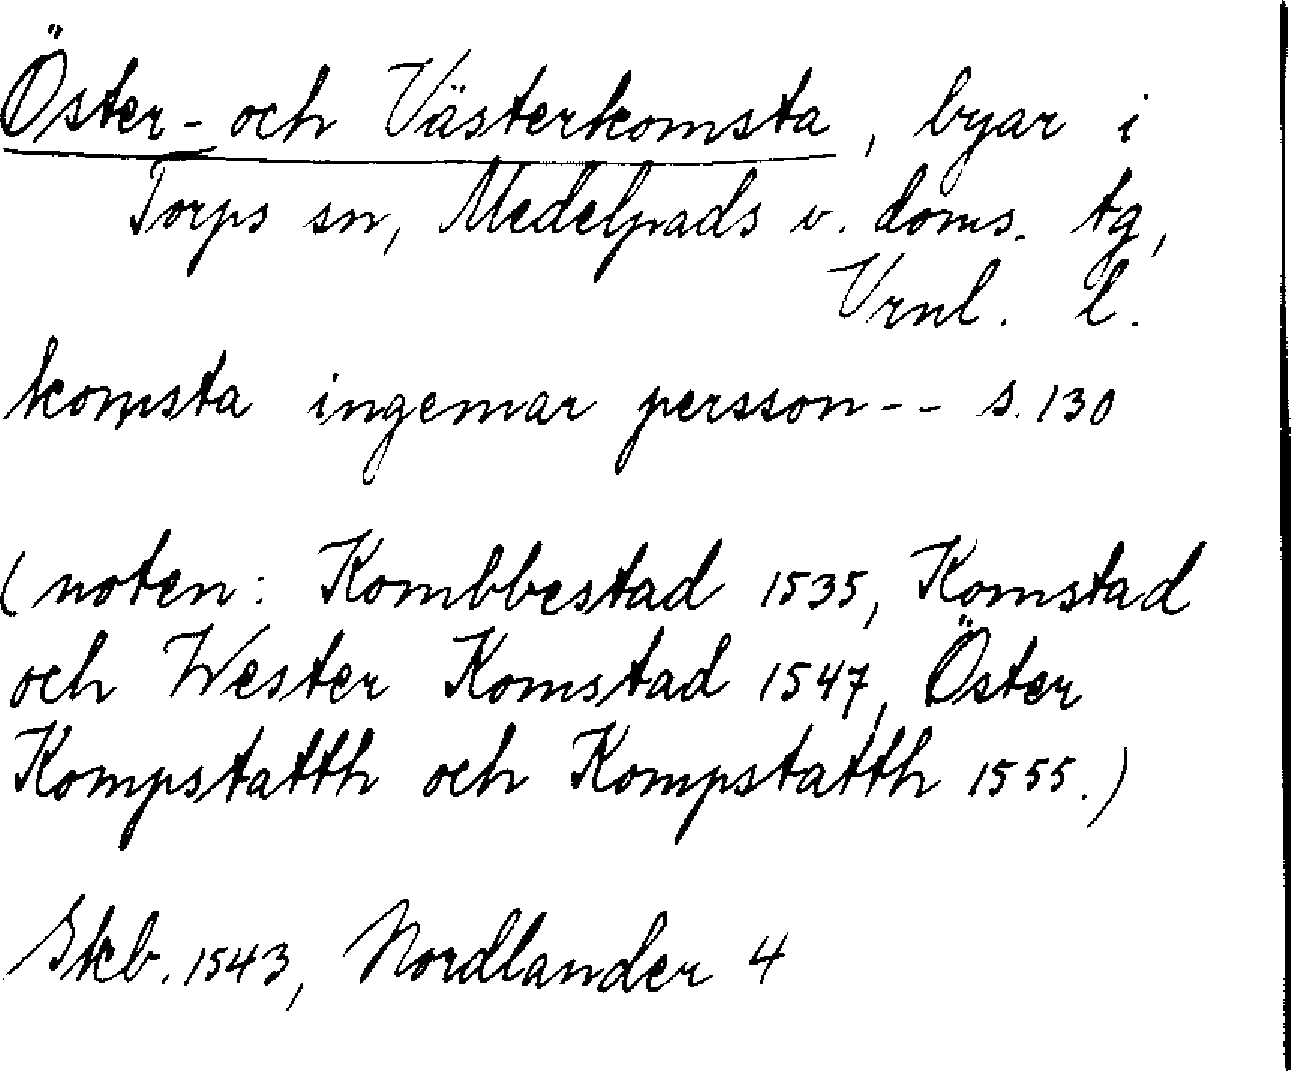 Öster- och Västerkomsta, byar i
Torps sn, Medelpads v. doms. tg,
Vrnl. l.
komsta ingemar persson-- s. 130
(noten: Kombbestad 1535, Komstad
och Wester Komstad 1547, Öster
Kompstatth och Kompstatth 1555.)
Skb. 1543, Nordlander 4